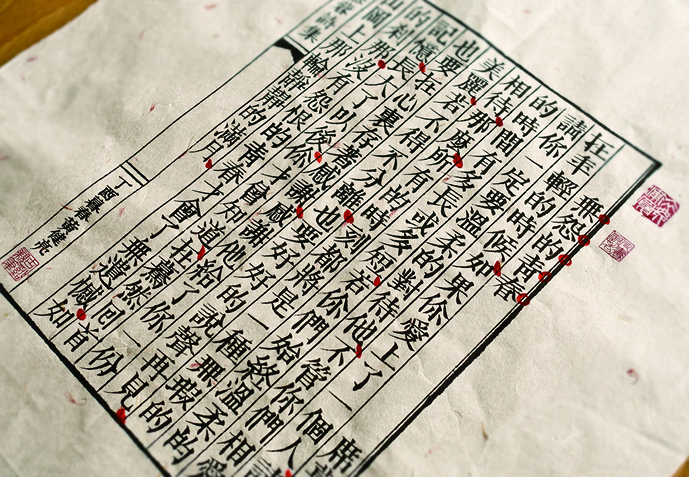 無怨的青春 席
在年輕的時候如果你愛上了一個人請
請你一定要溫柔的對待他不管你們相愛
的時間有多長或多短若你們始終溫柔的
相待那麼所有的時刻都將是一種無瑕的
美麗若不得不分離也要好好的說聲再見
也要在心裏存著感謝感謝他給了你一份
記憶長大了以後你才會知道在驀然回首
的剎那沒有怨恨的青春才會了無遺憾如
山岡上那輪靜靜的滿月
蓉詩集
丁酉暮春黃